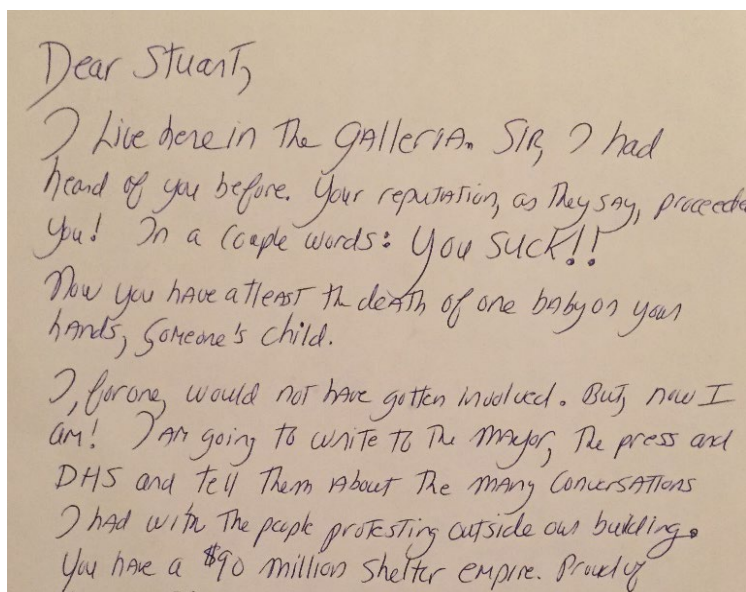 Dear Stuart,
I Live here in The GAlleria. Sir, I had
heard of you before. Your reputation, as They say, proceeded
you! In a couple words: You suck!!
Now you have atleast the death of one baby on your
hands, someone's child.
I, for one, would not have gotten involved. But, now I
am! I am going to write to The Mayor, The press and
DHS and tell Them About The many conversations
I had with The people protesting outside our building.
You have a $90 million shelter empire. Proud of